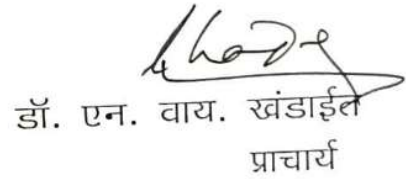 डॉ. एन. वाय. खंडाईत
प्राचार्य